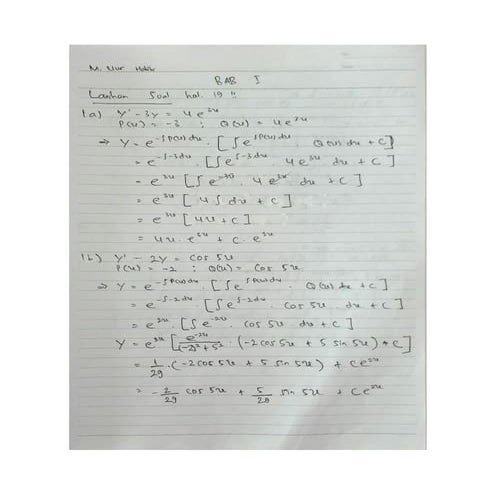 M. Nur
BAB I
Latihan Soal hal. 19 !!
1a) y' - 3y = 4e^3x
P(x) = -3 ; Q(x) = 4e^3x
→ y = e^-∫P(x)dx . [∫e^∫P(x)dx . Q(x) dx + C]
= e^-∫-3dx . [∫e^∫-3dx . 4e^3x . dx + C]
= e^3x [∫e^-3x . 4e^3x . dx + C]
= e^3x [4∫dx + C]
= e^3x [4x + C]
= 4x . e^3x + C . e^3x
1b) y' - 2y = cos 5x
P(x) = -2 ; Q(x) = cos 5x
→ y = e^-∫P(x)dx . [∫e^∫P(x)dx . Q(x) dx + C]
= e^-∫-2dx . [∫e^∫-2dx . cos 5x . dx + C]
= e^2x . [∫e^-2x . cos 5x . dx + C]
y = e^2x [e^-2x/((-2)²+5²) . (-2 cos 5x + 5 sin 5x) + C]
= 1/29 . (-2 cos 5x + 5 sin 5x) + Ce^2x
= -2/29 cos 5x + 5/29 sin 5x + Ce^2x